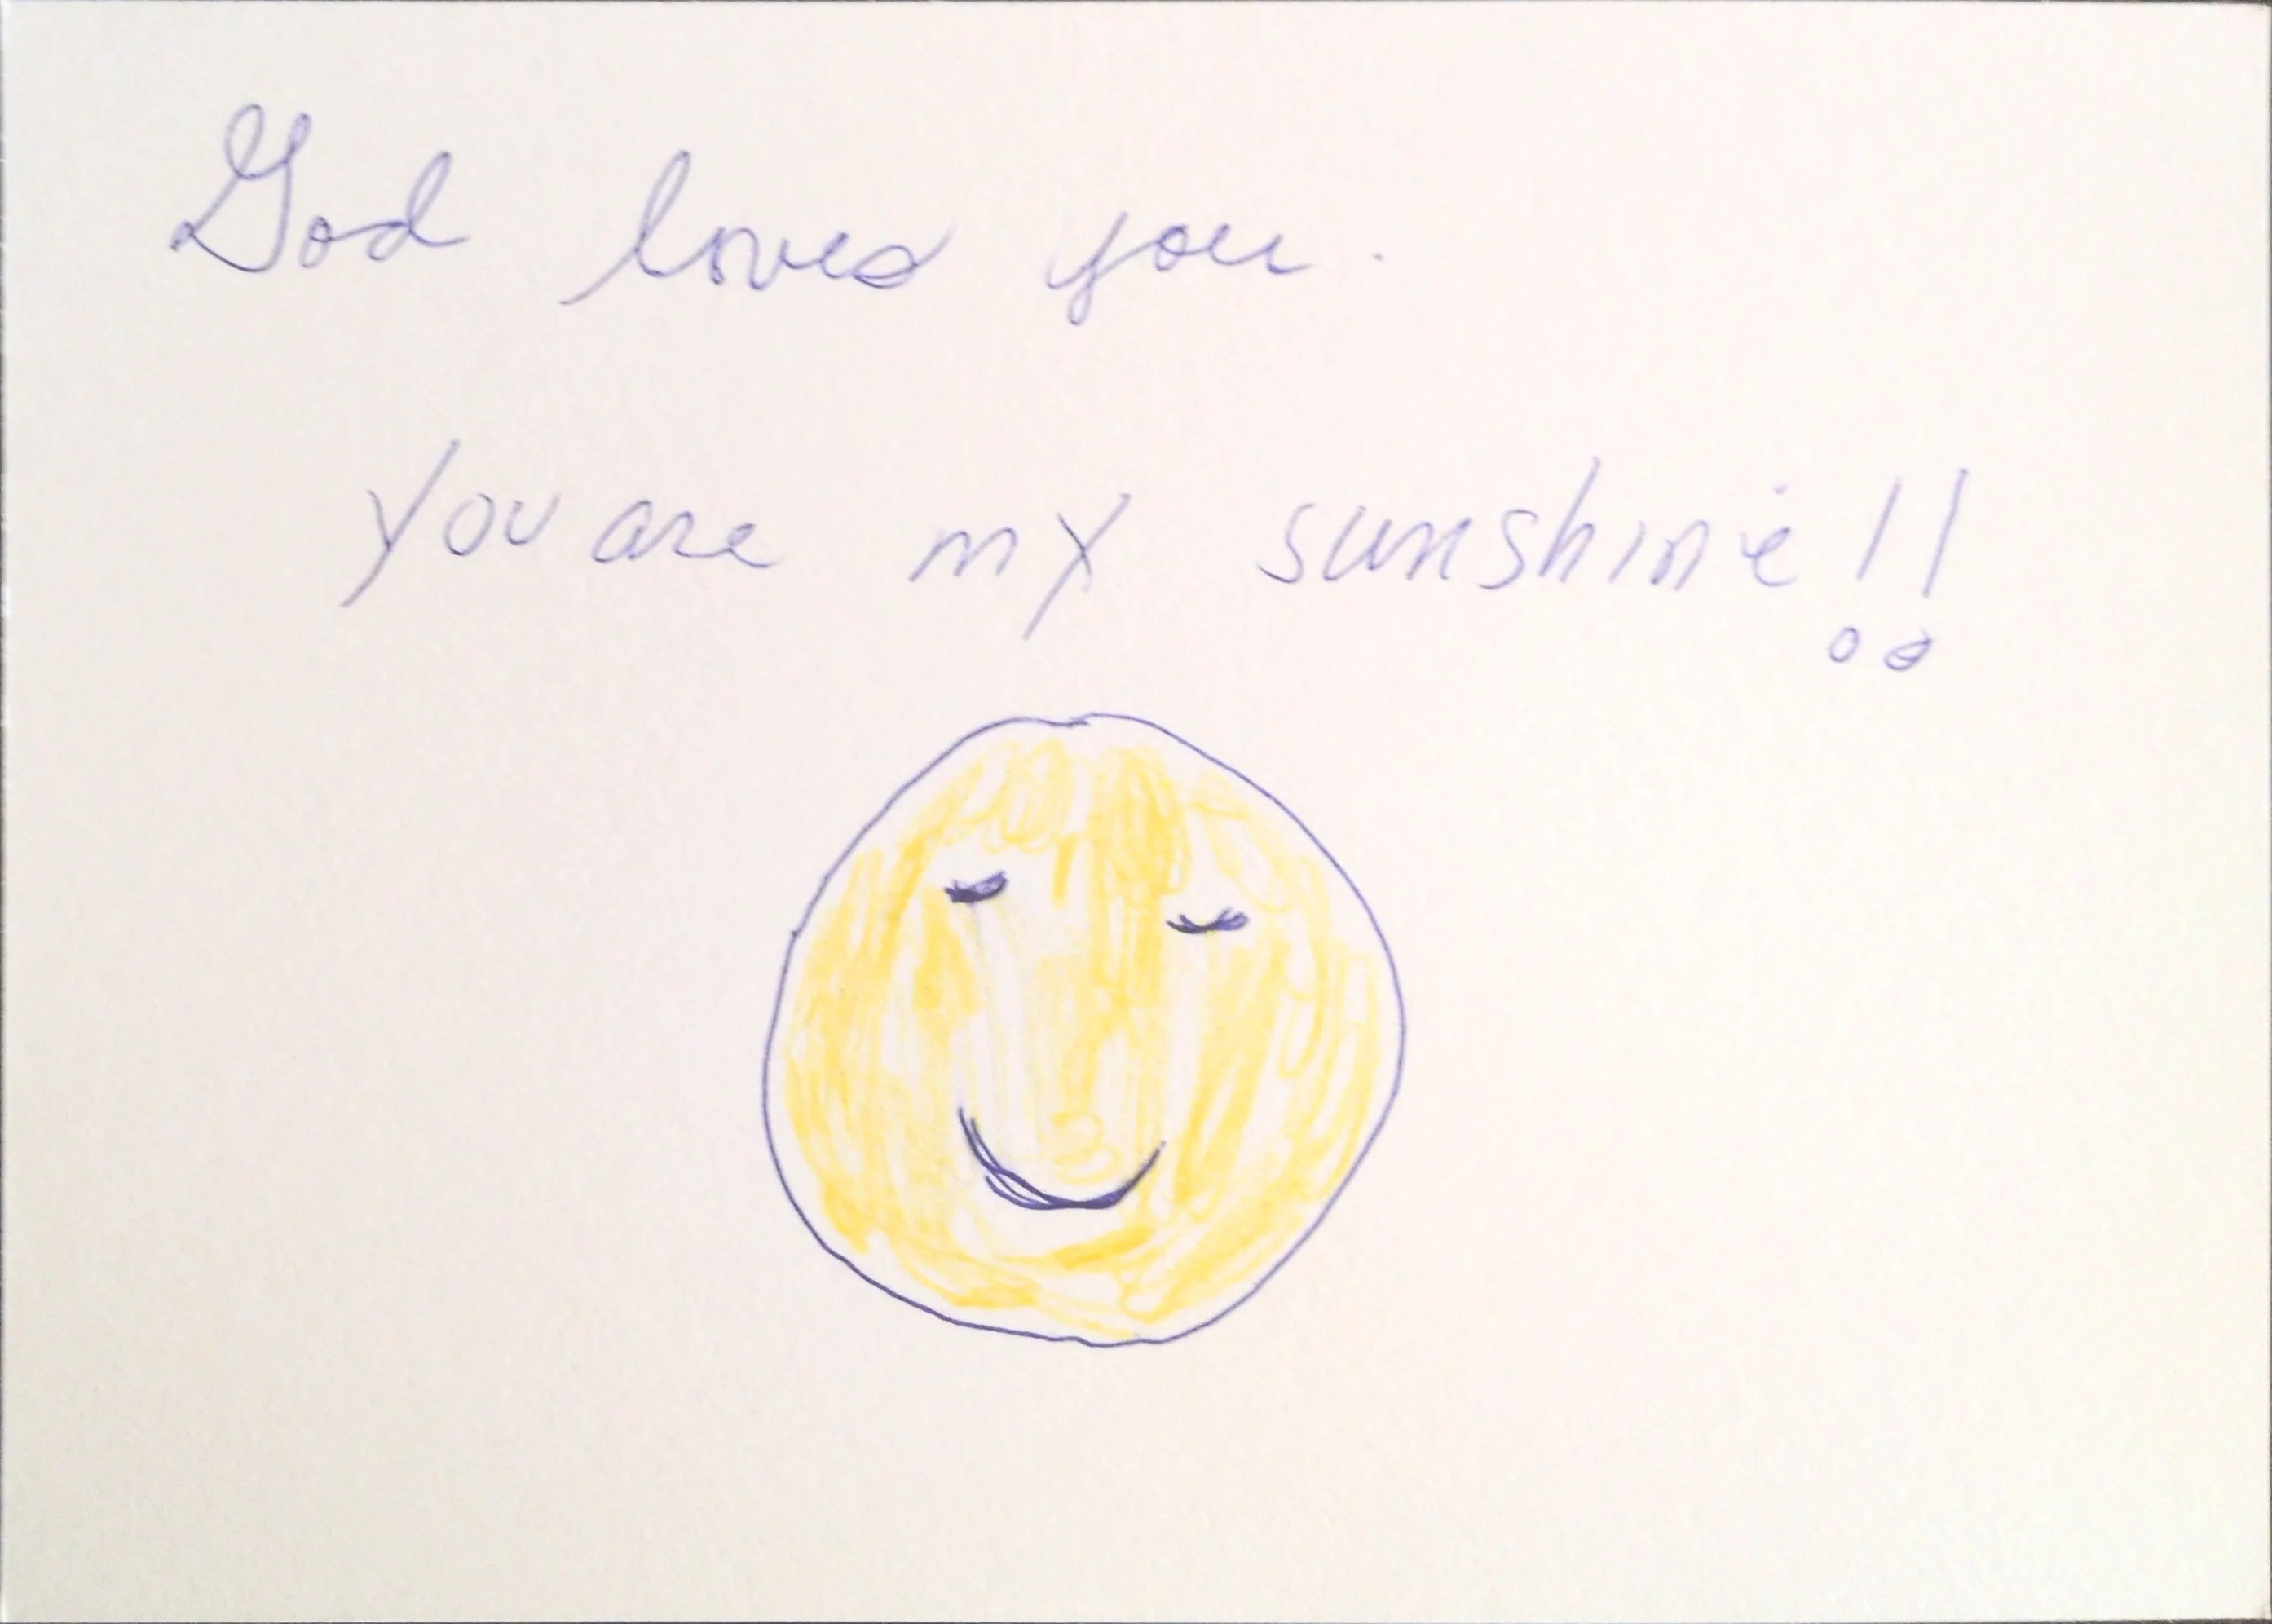 God loves you.
You are my sunshine!!